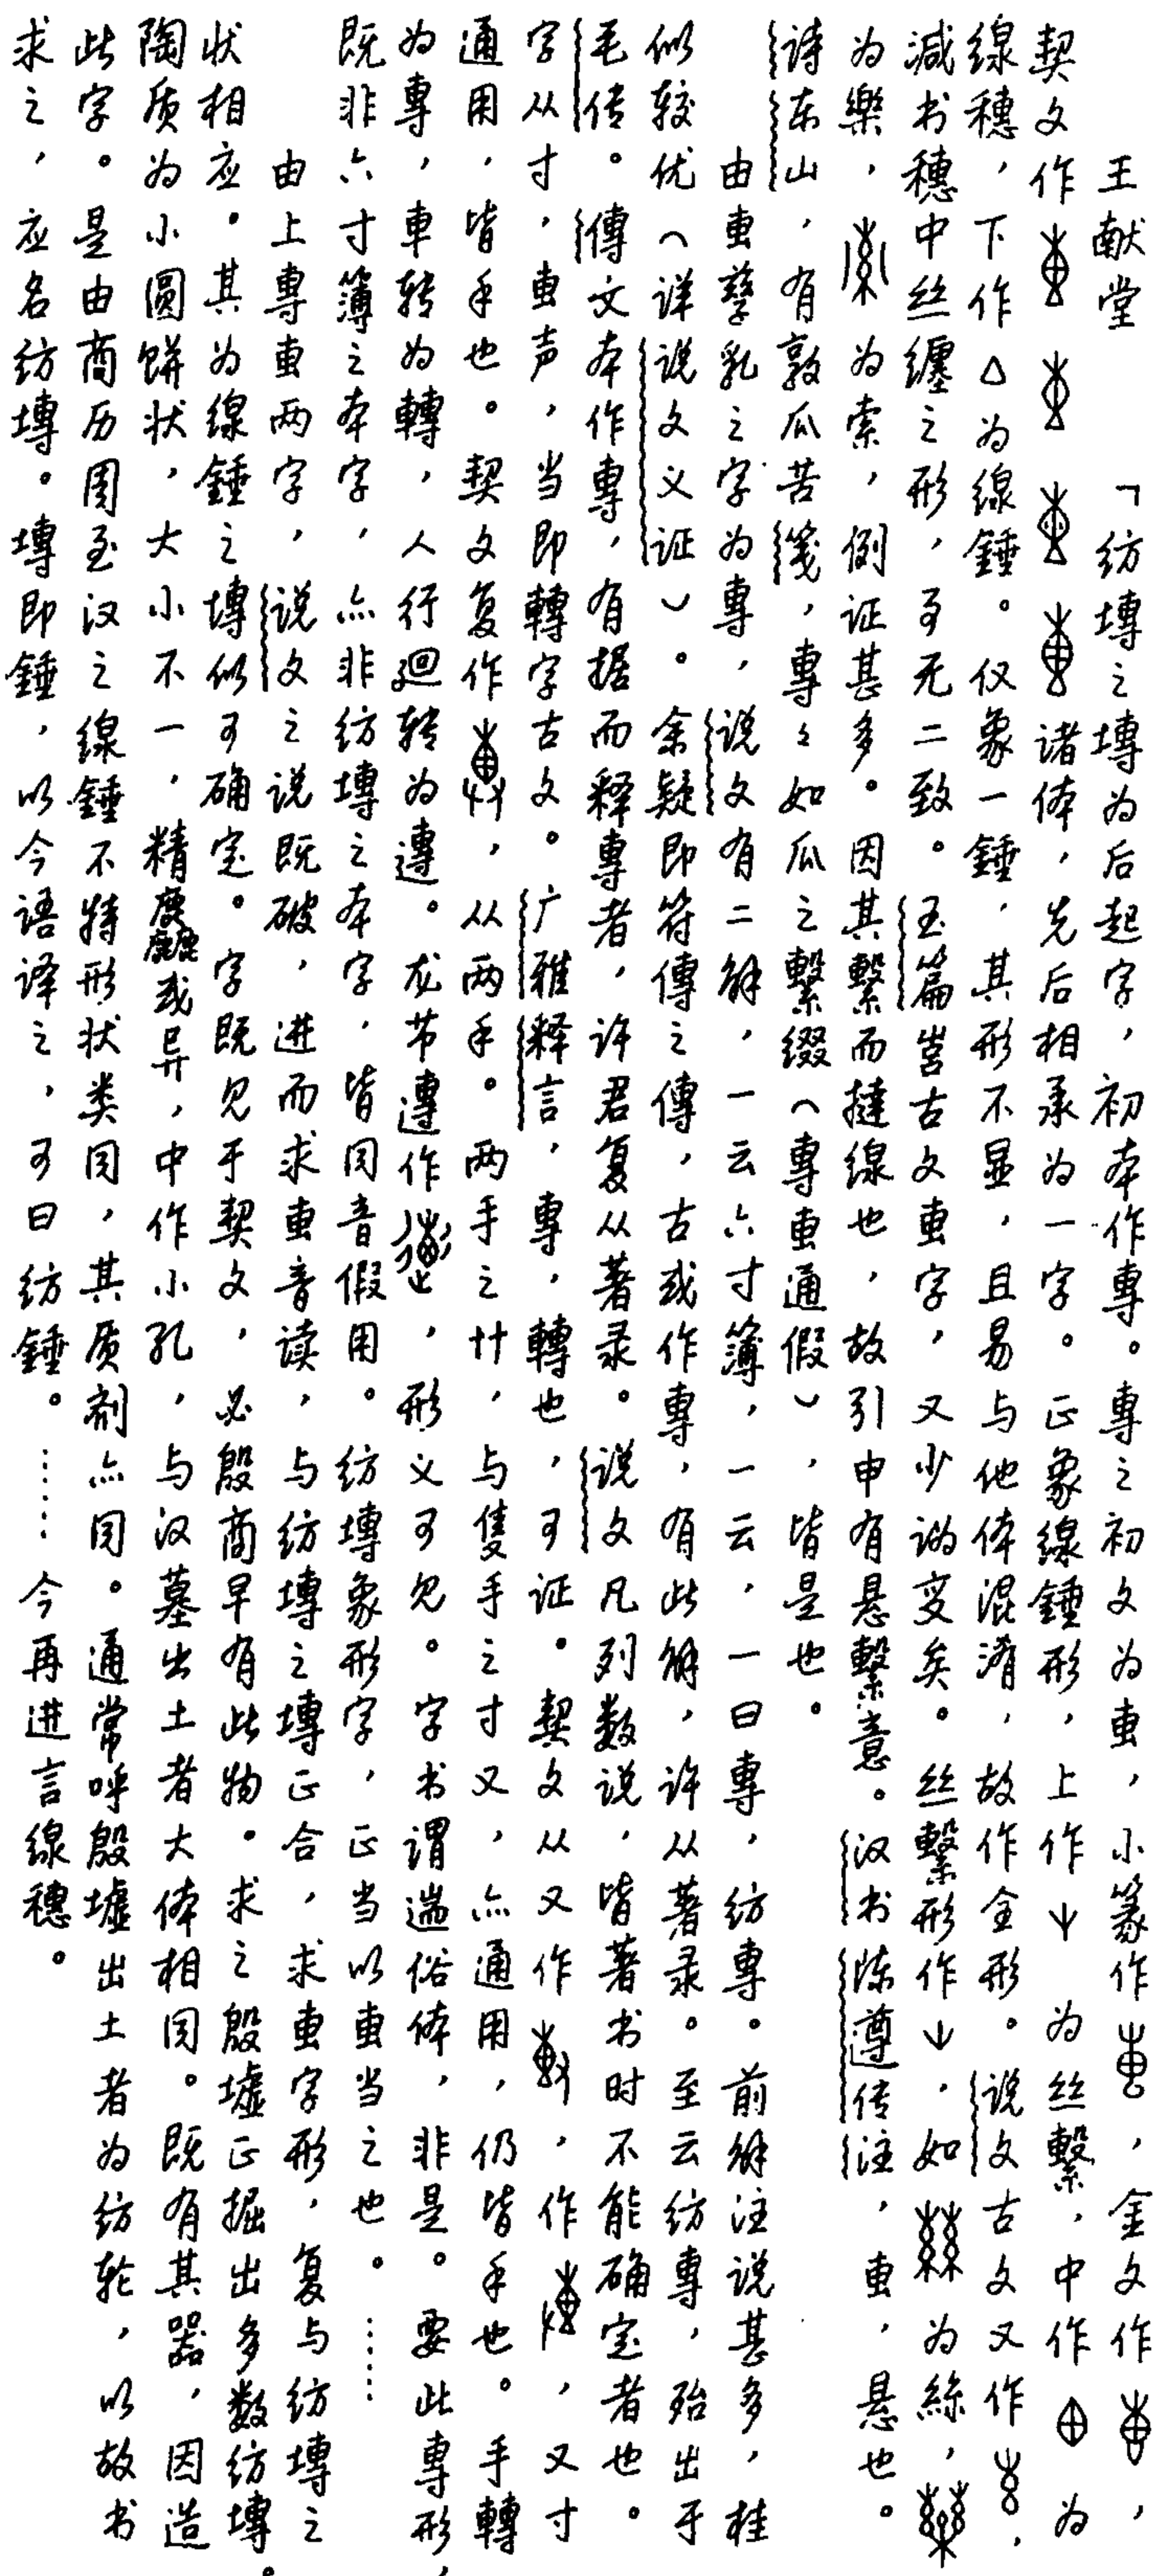 王献堂　「纺塼之塼为后起字，初本作專。專之初文为叀，小篆作，金文作，
契文作诸体，先后相承为一字。正象線錘形，上作为丝繫，中作为
線穗，下作△为線錘。仅象一錘，其形不显，且易与他体混淆，故作全形。说文古文又作，
减书穗中丝纏之形，可无二致。玉篇峕古文叀字，又少讹变矣。丝繫形作，如为絲，
为樂，为索，例证甚多。因其繫而撻線也，故引申有悬繫意。汉书陈遵传注，叀，悬也。
诗东山，有敦瓜苦笺，專〻如瓜之繫缀（專叀通假），皆是也。
由叀孳乳之字为專，说文有二解，一云六寸簿，一云，一曰專，纺專。前解注说甚多，桂
似较优（详说文义证）。余疑即符傳之傳，古或作專，有此解，许从著录。至云纺專，殆出于
毛传。傳文本作專，有据而释專者，许君复从著录。说文凡列数说，皆著书时不能确定者也。
字从寸，叀声，当即轉字古文。广雅释言，專，轉也，可证。契文从又作，作，又寸
通用，皆手也。契文复作，从两手。两手之廾，与隻手之寸又，亦通用，仍皆手也。手轉
为專，車转为轉，人行迴转为遱。龙节遱作，形义可见。字书谓遄俗体，非是。要此專形，
既非六寸簿之本字，亦非纺塼之本字，皆同音假用。纺塼象形字，正当以叀当之也。……
由上專叀两字，说文之说既破，进而求叀音读，与纺塼之塼正合，求叀字形，复与纺塼之
状相应。其为線錘之塼似可确定。字既见于契文，必殷商早有此物。求之殷墟正掘出多数纺塼。
陶质为小圆餅状，大小不一，精麤或异，中作小孔，与汉墓出土者大体相同。既有其器，因造
此字。是由商历周至汉之線錘不特形状类同，其质剂亦同。通常呼殷墟出土者为纺轮，以故书
求之，应名纺塼。塼即錘，以今语译之，可曰纺錘。……今再进言線穗。